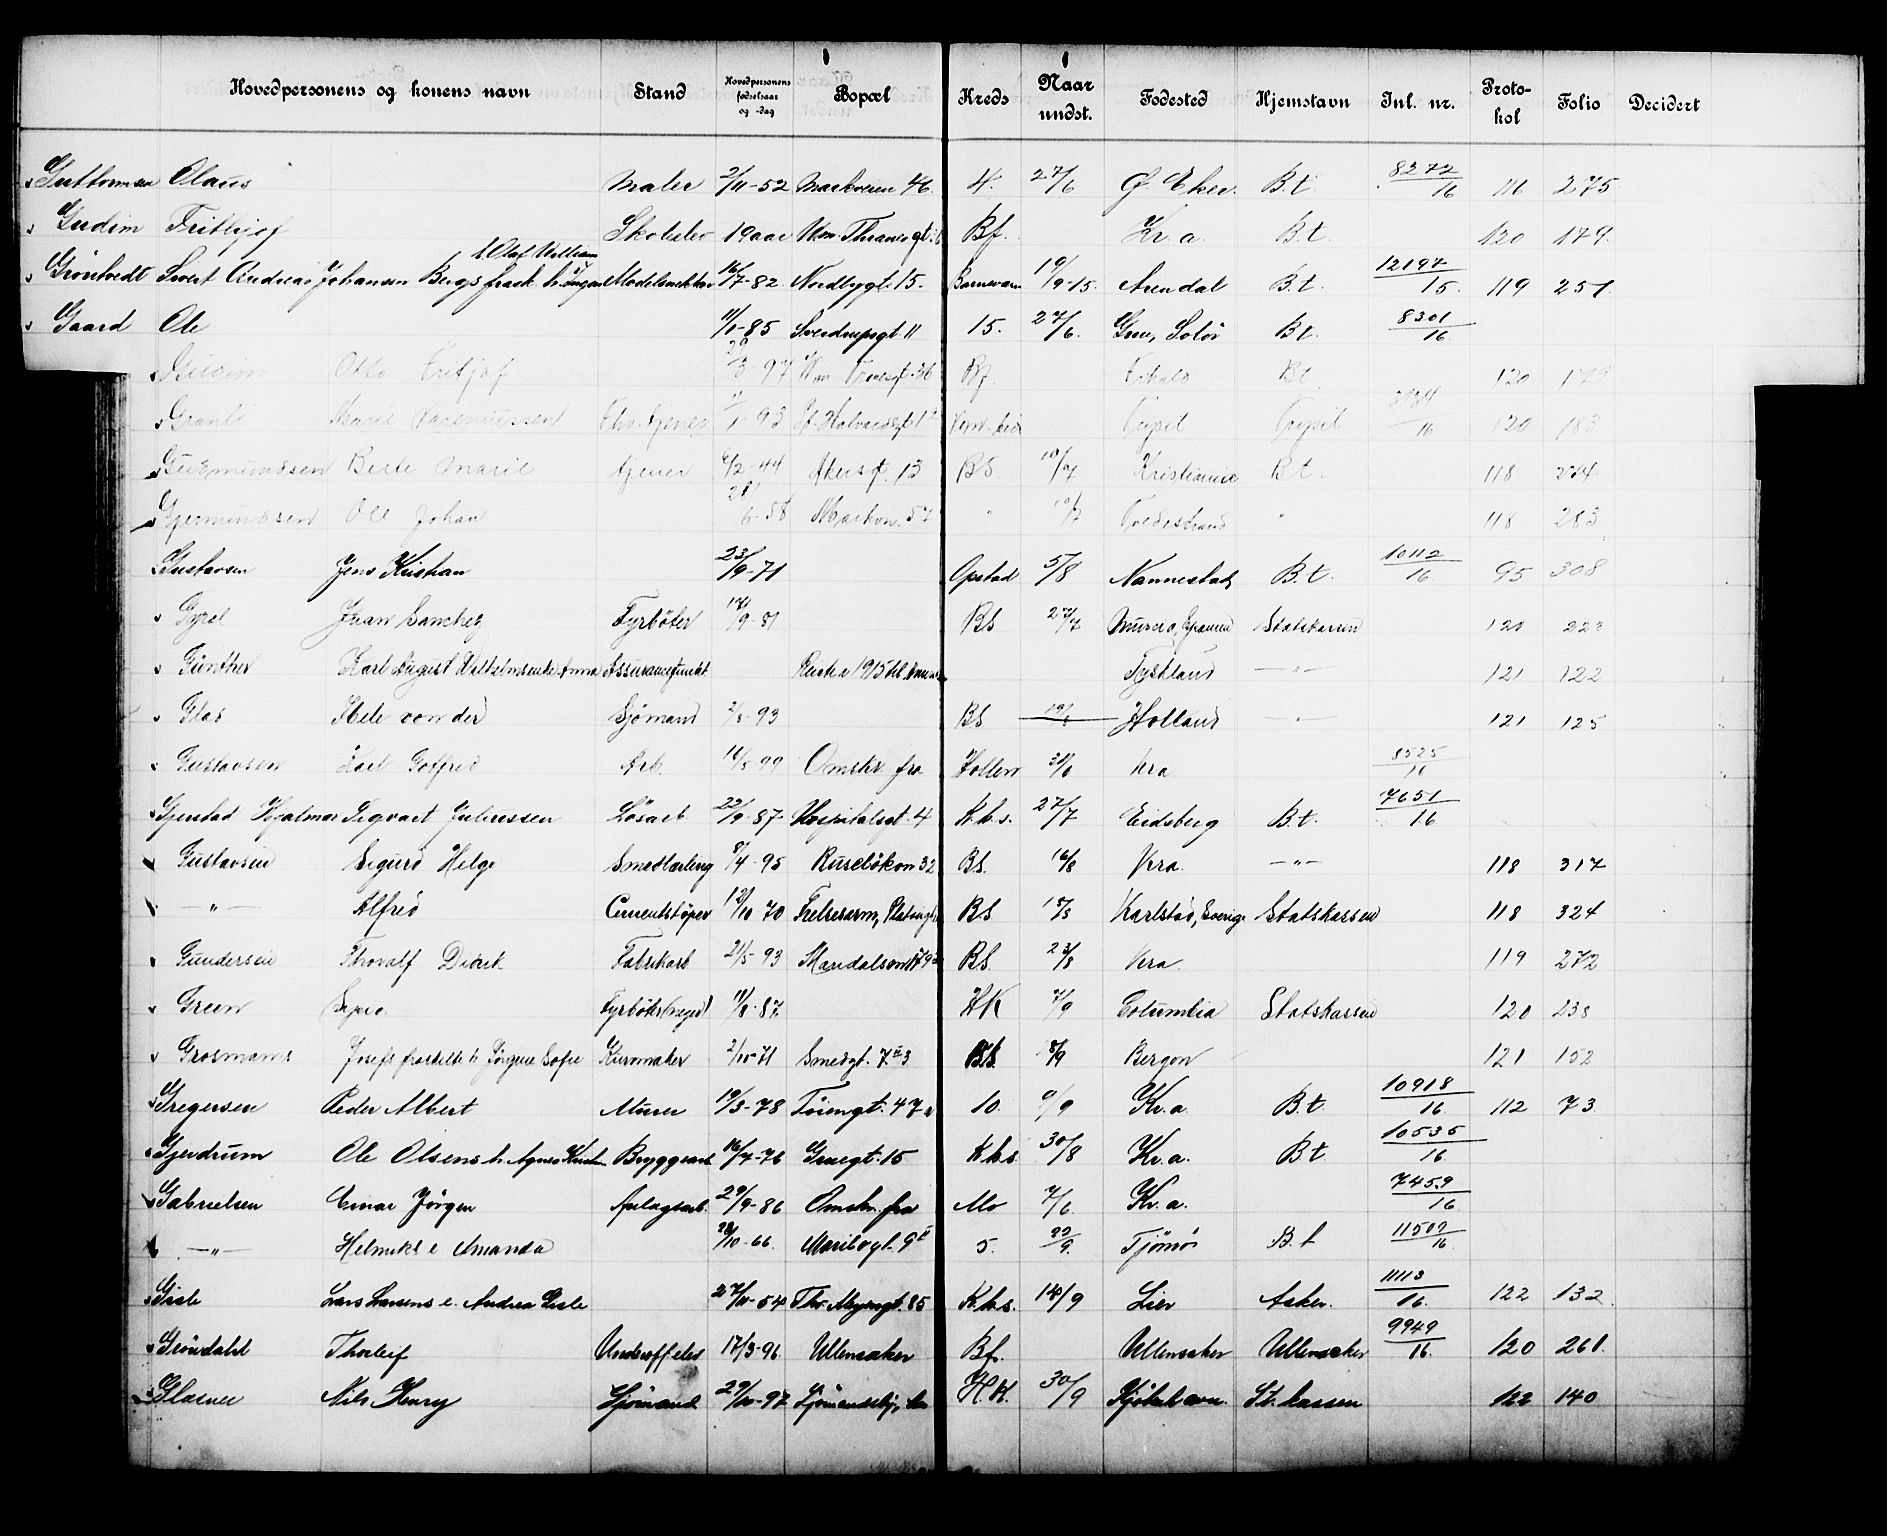 Hovedpersonens og konens navn Stand Hovedpersonens fødselsaar og -dag Bopæl Kreds Naar undst. Fødested Hjemstavn Inl. nr. Proto-kol Folio Decidert
Guttormsen Olaus Maler 2/11-52 Markveien 46 4. 27/6 Ø. Eker. B.t. 8272/16 116 275
Gudim Frithjof Skoleelev 19 aar Bf. Kr.a. B.t. 120 179.
Grøntvedt Sivert Andreas Johansen Bergs 16/7-82. Nordbygt. 15. 19/9-15. Arendal B.t. 12197/15. 119 251
Gaard Ole 11/1-85 Sverdrupsgt 11 15. 27/6. Grue, Solør B.t. 8301/16
Gudim Otto Fritjof 97 Bf. B.t. 120 179
Granli Marie 1-93 Trysil Trysil 3134/16 120 183
Gudmundsen Berte Marie tjener 6/2-44 Akersg. 13 BS 10/7 Kristiania B.t. 118 274
Gjermundsen Ole Johan 6-58 Markv. 57 " 10/7 Tvedestrand " 118 283
Gustavsen Jens Kristian 23/9-71 Opstad 5/8 Nannestad B.t. 10112/16 95 308
Juan Sanchez Fyrbøter 17/9-81 BS 27/7 Murcia, Spanien Statskassen 120 223
Günther Karl August Tyskland —"— 121 122
Glas Hele von der Sjømand 2/8-93 BS Holland —"— 121 125
Gustavsen Karl Gotfred Arb. 14/5-99 Omstr. fra 30/6 Kra 8525/16
Gjerstad Hjalmar Sigvart Juliussen Løsarb. 22/9-87 Hospitalsgt. 4 K.k.s. 27/7 Eidsberg B.t. 7651/16
Gustavsen Sigurd Helge Smedlærling 8/4-95 Ruseløkvn 32 BS. 16/8 Kra. —"— 118 317
—"— Alfred Cementstøper 12/10 70 Frelsesarm, BS Karlstad, Sverige Statskassen 118 324
Gundersen Thorolf Didrik Fabrikarb 21/5-93 BS. 23/8 Kra. 119 272
Green Fyrbøter (neger) 11/8-87. HK 7/9 Columbia Statskassen 120 238
Grosmann Josefs Jørgine Sofie Kurvmaker 2/10-71 Smedgt. 7 BS. 8/9 Bergen 121 152
Gregersen Peder Albert Murer 19/3-78 Tøiengt. 47 10. 9/9 Kr.a. B.t 10918/16. 112 73
Gjerdrum Ole Olsens h. Agnes Bryggearb 16/7-76 Gruegt. 15 K.k.s 30/8 Kr.a. B.t 10535/16
Gabrielsen Einar Jørgen Anlægsarb. 29/9-86 Omstr. fra Mo 7/6 Kr.a. 7459/16
—"— Helmikl e Amanda 28/10-66. Maribogt. 9 II 5. 22/9. Tjømø B.t 11509/16.
Gisle Lars Larsens e. Andrea Gisle 27/11-54 Th. Meyersgt. 85 K.k.s. 14/9 Lier Asker. 11113/16. 122 132.
Grøndahl Thorleif Underoff.elev 17/3-96. Ullensaker Bf. Ullensaker Ullensaker 9949/16. 120 261.
Nils Henry Sjømand 29/10-97 H.K. 30/9 Kjøbenhavn. St. kassen 122 140